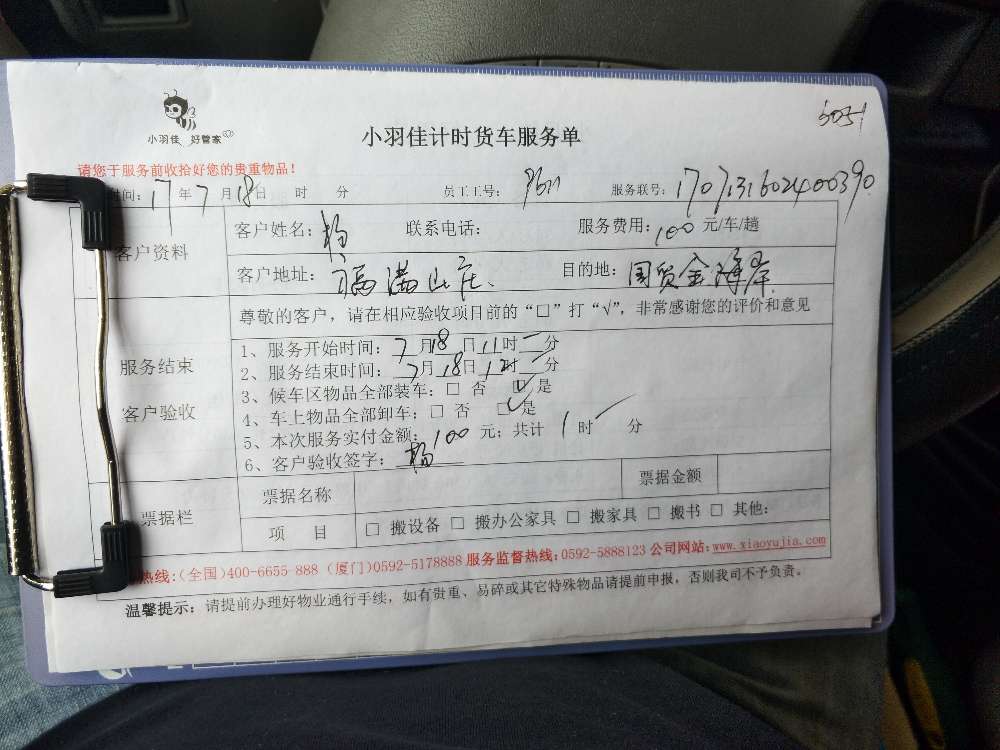 5051
小羽佳 好管家
小羽佳计时货车服务单
请您于服务前收拾好您的贵重物品！
时间：17年7月18日 时 分 员工工号： 服务联号：1707131602400390
客户资料
客户姓名：杨 联系电话： 服务费用：100元/车/趟
客户地址：福满山庄、 目的地：国贸金海岸
尊敬的客户，请在相应验收项目前的“□”打“√”，非常感谢您的评价和意见
服务结束
客户验收
1、服务开始时间：7月18日11时 分
2、服务结束时间：7月18日12时 分
3、候车区物品全部装车：□ 否 ☑ 是
4、车上物品全部卸车：□ 否 ☑ 是
5、本次服务实付金额：100元；共计 1 时 分
6、客户验收签字：杨
票据栏
票据名称 票据金额
项 目 □ 搬设备 □ 搬办公家具 □ 搬家具 □ 搬书 □ 其他：
热线：(全国)400-6655-888 (厦门)0592-5178888 服务监督热线：0592-5888123 公司网站：www.xiaoyujia.com
温馨提示：请提前办理好物业通行手续，如有贵重、易碎或其它特殊物品请提前申报，否则我司不予负责。